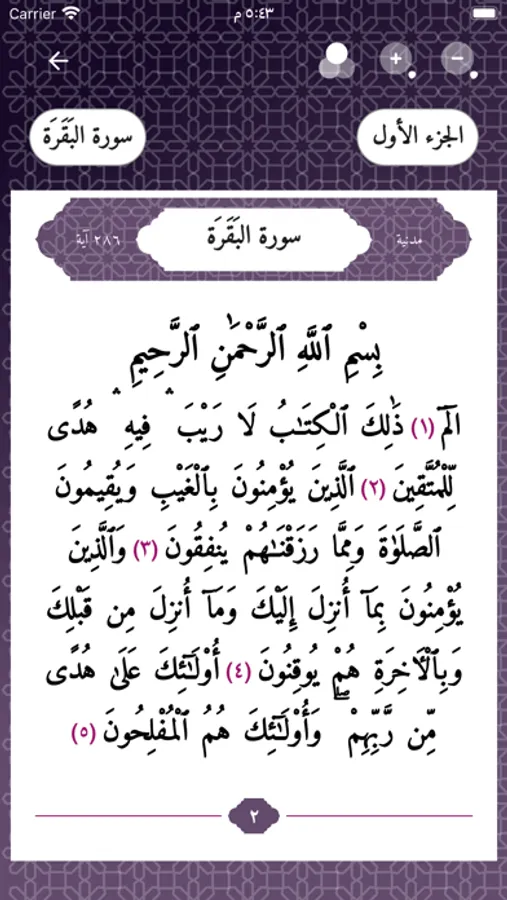 Carrier ٥:٤٣ م
الجزء الأول
سورة البَقَرَة
مدنية
سورة البَقَرَة
٢٨٦ آية
بِسْمِ ٱللَّهِ ٱلرَّحْمَٰنِ ٱلرَّحِيمِ
الٓمٓ (١) ذَٰلِكَ ٱلْكِتَٰبُ لَا رَيْبَ ۛ فِيهِ ۛ هُدًى
لِّلْمُتَّقِينَ (٢) ٱلَّذِينَ يُؤْمِنُونَ بِٱلْغَيْبِ وَيُقِيمُونَ
ٱلصَّلَوٰةَ وَمِمَّا رَزَقْنَٰهُمْ يُنفِقُونَ (٣) وَٱلَّذِينَ
يُؤْمِنُونَ بِمَآ أُنزِلَ إِلَيْكَ وَمَآ أُنزِلَ مِن قَبْلِكَ
وَبِٱلْـَٔاخِرَةِ هُمْ يُوقِنُونَ (٤) أُو۟لَٰٓئِكَ عَلَىٰ هُدًى
مِّن رَّبِّهِمْ ۖ وَأُو۟لَٰٓئِكَ هُمُ ٱلْمُفْلِحُونَ (٥)
٢